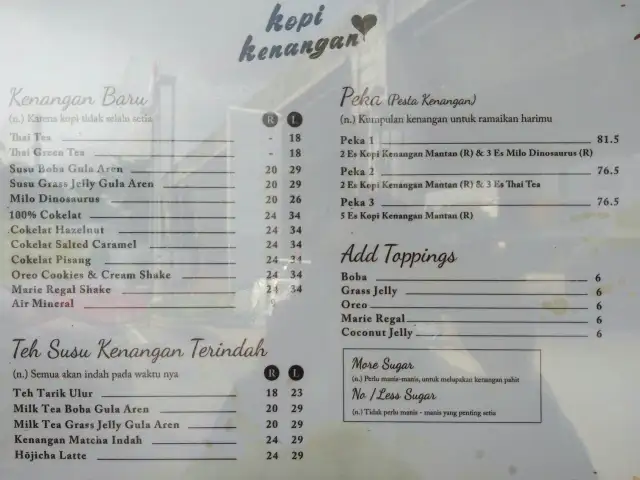 kopi
kenangan
Kenangan Baru
(n.) Karena kopi tidak selalu setia R L
Thai Tea - 18
Thai Green Tea - 18
Susu Boba Gula Aren 20 29
Susu Grass Jelly Gula Aren 20 29
Milo Dinosaurus 20 26
100% Cokelat 24 34
Cokelat Hazelnut 24 34
Cokelat Salted Caramel 24 34
Cokelat Pisang 24 34
Oreo Cookies & Cream Shake 24 34
Marie Regal Shake 24 34
Air Mineral
Teh Susu Kenangan Terindah
(n.) Semua akan indah pada waktu nya R L
Teh Tarik Ulur 18 23
Milk Tea Boba Gula Aren 20 29
Milk Tea Grass Jelly Gula Aren 20 29
Kenangan Matcha Indah 24 29
Hōjicha Latte 24 29
Peka (Pesta Kenangan)
(n.) Kumpulan kenangan untuk ramaikan harimu
Peka 1 81.5
2 Es Kopi Kenangan Mantan (R) & 3 Es Milo Dinosaurus (R)
Peka 2 76.5
2 Es Kopi Kenangan Mantan (R) & 3 Es Thai Tea
Peka 3 76.5
5 Es Kopi Kenangan Mantan (R)
Add Toppings
Boba 6
Grass Jelly 6
Oreo 6
Marie Regal 6
Coconut Jelly 6
More Sugar
(n.) Perlu manis-manis, untuk melupakan kenangan pahit
No /Less Sugar
(n.) Tidak perlu manis - manis yang penting setia